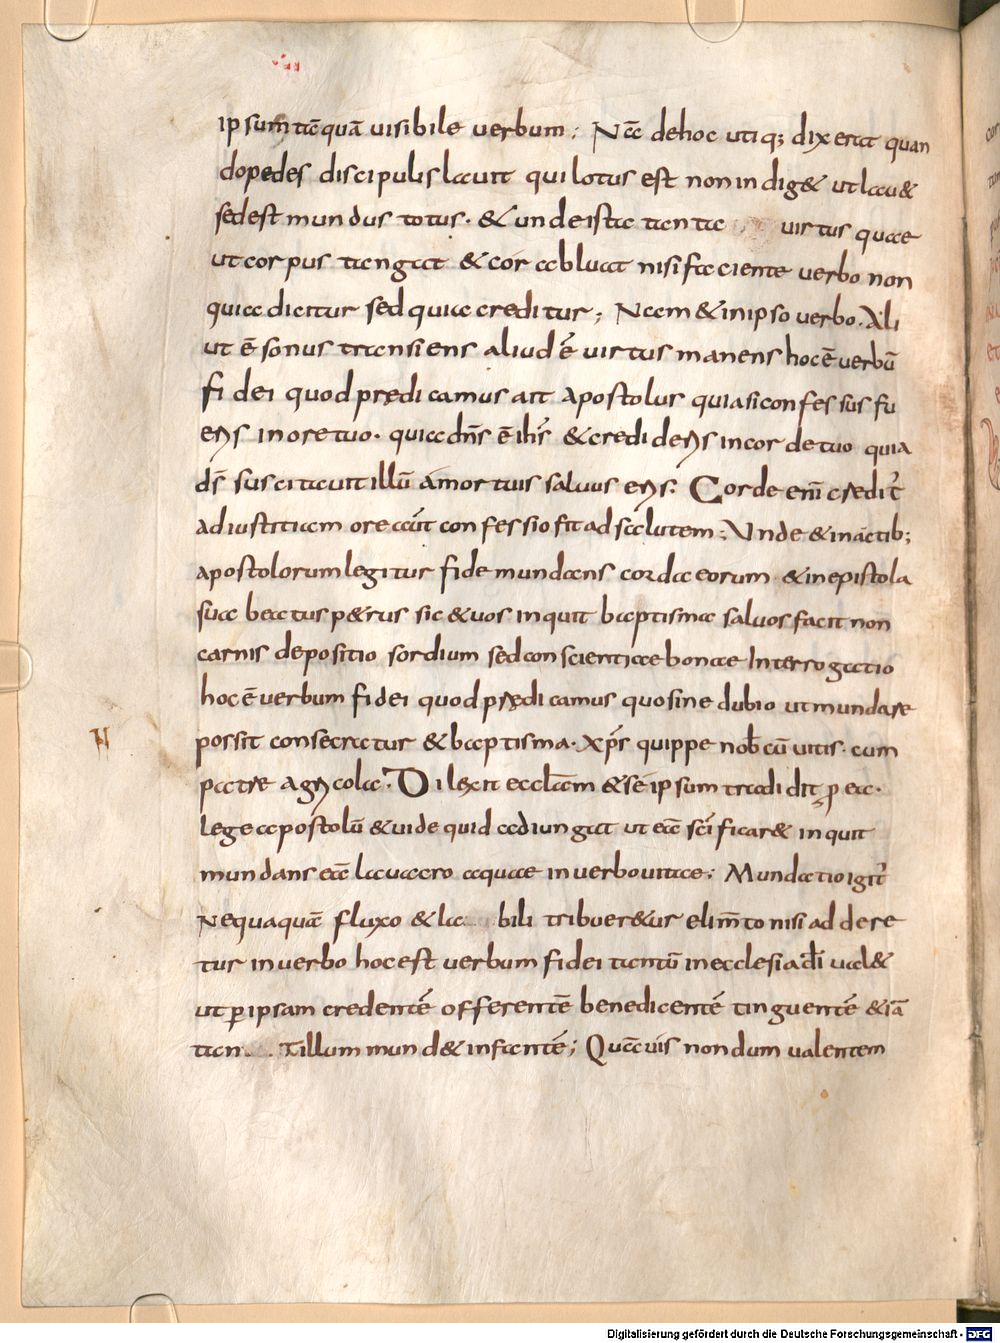 ipsum tāquā uisibile uerbum; Nā dehoc utiq; dixerat quan
dopedes discipulislauit quilotus est nonindig& utlau&
sedest mundus totus. & undeista tanta uirtus quae
utcorpus tangat & cor abluat nisi faciente uerbo non
quia dicitur sedquia creditur; Nam & inipso uerbo. Ali
ut ē sonus transiens aliud ē uirtus manens hoc ē uerbū
fidei quodprędicamus ait apostolus quiasiconfessus fu
eris inoretuo. quia dn̄s ē ih̄s & credideris incordetuo quia
ds̄ suscitauit illū amortuis saluus eris. Corde enī credit̄
adiustitiam ore aūt confessio fit adsalutem; Unde & inactib;
apostolorumlegitur fide mundans corda eorum & inepistola
sua beatus p&rus sic & uos inquit baptisma saluos facit nōn
carnis depositio sordium sedconscientiae bonae Interrogatio
hoc ē uerbum fidei quodprędicamus quosine dubio utmundare
possit consecratur & baptisma. xp̄s quippe nob̄ cū uitis. cum
N
patre agricola. Dilexit eccl̄am & se ipsum tradidit p ea.
lege apostolū & uide quid adiungat ut eā sc̄ificar& inquit
mundans eā lauacro aquae inuerbouitae; Mundatioigit̄
Nequaquā fluxo & la bili tribuer&ur elim̄to nisi addere
tur inuerbo hocest uerbum fidei tantū inecclesia dī ual&
ut p ipsam credentē offerentē benedicentē tinguentē & iā
tan Tillum mund& infantē; Quāuis nondum ualentem
Digitalisierung gefördert durch die Deutsche Forschungsgemeinschaft - DFG